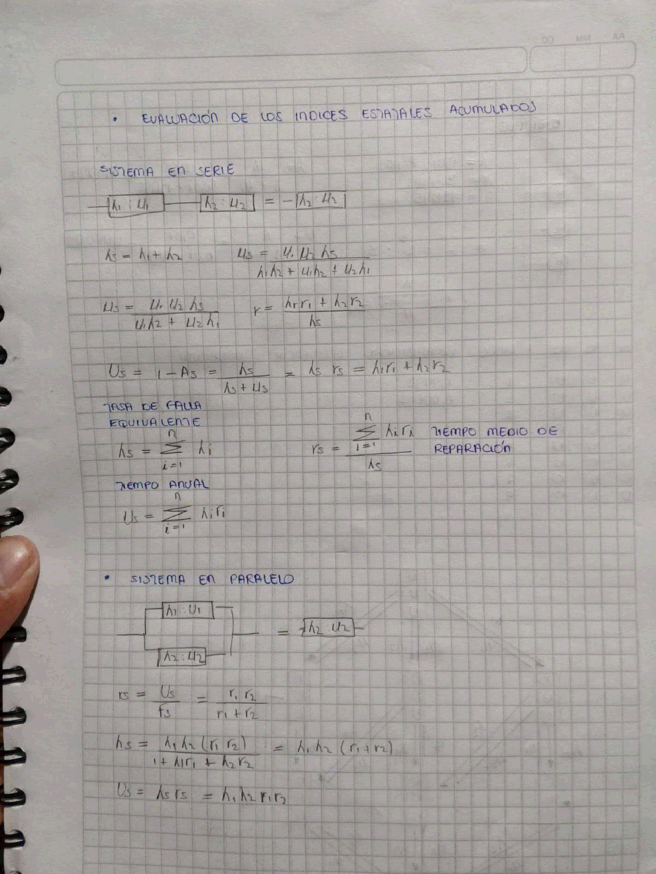 • EVALUACIÓN DE LOS INDICES ESTATALES ACUMULADOS
SISTEMA EN SERIE
λ1 : U1 λ2 : U2 = λ2 : U2
λs = λ1 + λ2 Us = U1 U2 λs / λ1λ2 + U1λ2 + U2λ1
Us = U1 U2 λs / U1λ2 + U2λ1 r = λ1r1 + λ2r2 / λs
Us = 1 - As = λs / λs + Us = λs rs = λ1r1 + λ2r2
TASA DE FALLA
EQUIVALENTE
λs = n Σ i=1 λi rs = n Σ i=1 λi ri / λs TIEMPO MEDIO DE REPARACIÓN
TIEMPO ANUAL
Us = n Σ i=1 λi ri
• SISTEMA EN PARALELO
λ1 : U1
= λ2 U2
λ2 : U2
rs = Us / fs = r1 r2 / r1 + r2
λs = λ1 λ2 (r1 r2) / 1 + λ1r1 + λ2r2 = λ1 λ2 (r1 + r2)
Us = λs rs = λ1 λ2 r1 r2